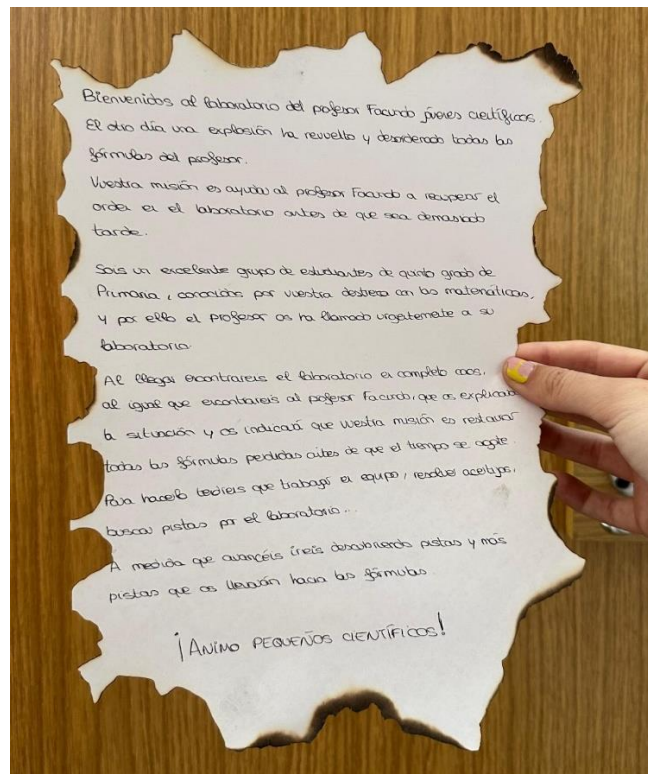 Bienvenidos al laboratorio del profesor Facundo jóvenes científicos.
El otro día una explosión ha revuelto y desordenado todas las
fórmulas del profesor.
Vuestra misión es ayudar al profesor Facundo a recuperar el
orden en el laboratorio antes de que sea demasiado
tarde.
Sois un excelente grupo de estudiantes de quinto grado de
Primaria, conocidos por vuestra destreza con las matemáticas,
y por ello el profesor os ha llamado urgentemente a su
laboratorio.
Al llegar encontrareis el laboratorio en completo caos,
al igual que encontrareis al profesor Facundo, que os explicará
la situación y os indicará que vuestra misión es restaurar
todas las fórmulas perdidas antes de que el tiempo se agote.
Para hacerlo tendréis que trabajar en equipo, resolver acertijos,
buscar pistas por el laboratorio...
A medida que avancéis iréis descubriendo pistas y más
pistas que os llevarán hacia las fórmulas.
¡ANIMO PEQUEÑOS CIENTÍFICOS!